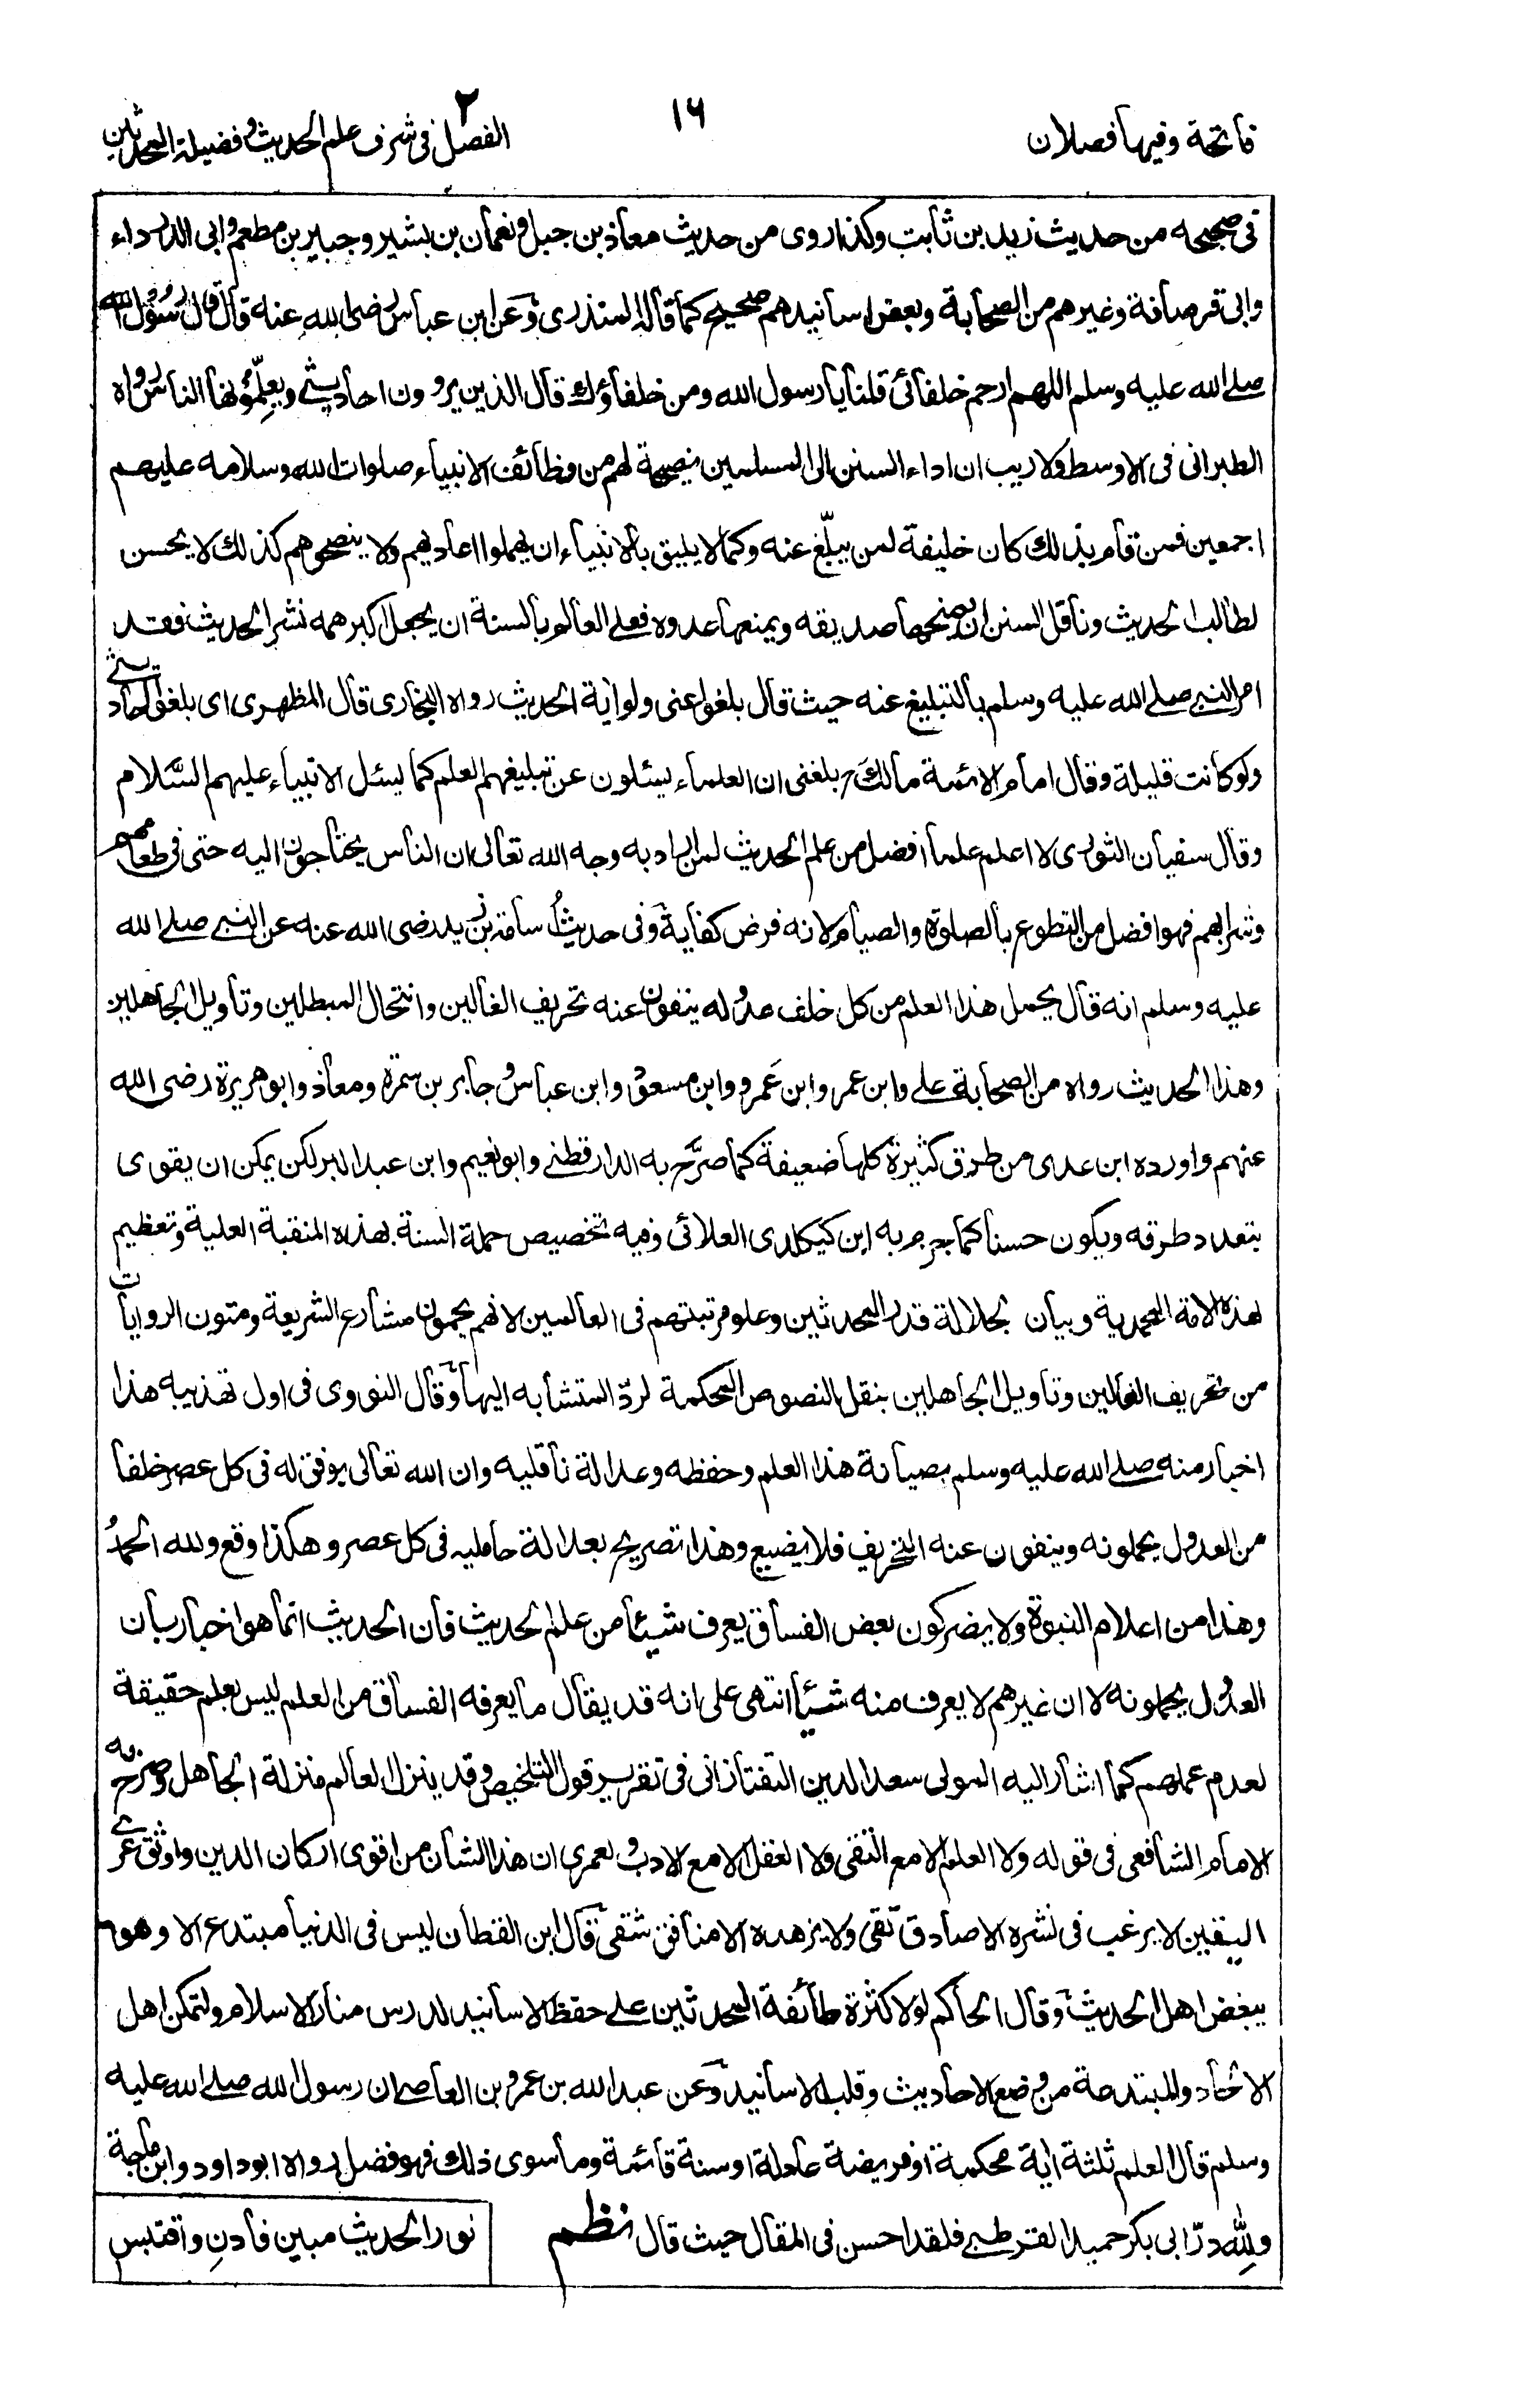 فاتحة وفيها فصلان
١٦
الفصل ٢ فى شرف علم الحديث وفضيلة المحدثين
فى صحيحه من حديث زيد بن ثابت وكذا روى من حديث معاذ بن جبل ونعمان بن بشير وجبير بن مطعم وابى الدرداء
وابى قرصافة وغيرهم من الصحابة وبعض اسانيدهم صحيح كما قاله المنذرى وعن ابن عباس رضى الله عنه قال قال رسول الله
صلى الله عليه وسلم اللهم ارحم خلفائى قلنا يا رسول الله ومن خلفاؤك قال الذين يروون احاديثى ويعلّمونها الناس رواه
الطبرانى فى الاوسط ولا ريب ان اداء السنن الى المسلمين نصيحة لهم من وظائف الانبياء صلوات الله وسلامه عليهم
اجمعين فمن قام بذلك كان خليفة لمن يبلّغ عنه وكما لا يليق بالانبياء ان يهملوا اعاديهم ولا ينصحوهم كذلك لا يحسن
لطالب الحديث وناقل السنن ان يمنحها صديقه ويمنعها عدوه فعلى العالم بالسنة ان يجعل اكبر همه نشر الحديث فقد
امر النبى صلى الله عليه وسلم بالتبليغ عنه حيث قال بلغوا عنى ولو اية الحديث رواه البخارى قال المظهرى اى بلغوا احاديثى
ولو كانت قليلة وقال امام الائمة مالك بلغنى ان العلماء يسئلون عن تبليغهم العلم كما يسئل الانبياء عليهم السَّلام
وقال سفيان الثورى لا اعلم علما افضل من علم الحديث لمن اراد به وجه الله تعالى ان الناس يحتاجون اليه حتى فى طعامهم
وشرابهم فهو افضل من التطوع بالصلوة والصيام لانه فرض كفاية وفى حديث اسامة بن زيد رضى الله عنه عن النبى صلى الله
عليه وسلم انه قال يحمل هذا العلم من كل خلف عدوله ينفون عنه تحريف الغالين وانتحال المبطلين وتأويل الجاهلين
وهذا الحديث رواه من الصحابة على وابن عمر وابن عَمرو وابن مسعود وابن عباس وجابر بن سمرة ومعاذ وابو هريرة رضى الله
عنهم واورده ابن عدى من طرق كثيرة كلها ضعيفة كما صرَّح به الدارقطنى وابو نعيم وابن عبد البر لكن يمكن ان يقوى
بتعدد طرقه ويكون حسنا كما جزم به ابن كيكلدى العلائى وفيه تخصيص حملة السنة بهذه المنقبة العلية وتعظيم
لهذه الامة المحمدية وبيان لجلالة قدر المحدثين وعلو مرتبتهم فى العالمين لانهم يحمون مشارع الشريعة ومتون الروايات
من تحريف الغالين وتأويل الجاهلين بنقل النصوص المحكمة لردّ المتشابه اليها وقال النووى فى اول تهذيبه هذا
اخبار منه صلى الله عليه وسلم بصيانة هذا العلم وحفظه وعدالة ناقليه وان الله تعالى يوفق له فى كل عصر خلفا
من العدول يحملونه وينفون عنه التحريف فلا يضيع وهذا تصريح بعدالة حامليه فى كل عصر وهكذا وقع ولله الحمدُ
وهذا من اعلام النبوة ولا يضر كون بعض الفساق يعرف شيئا من علم الحديث فان الحديث انما هو اخبار بان
العدول يحملونه لا ان غيرهم لا يعرف منه شيئا انتهى على انه قد يقال ما يعرفه الفساق من العلم ليس بعلم حقيقة
لعدم عملهم كما اشار اليه المولى سعد الدين التفتازانى فى تقرير قول التلخيص وقد ينزل العالم منزلة الجاهل وصرّح به
الامام الشافعى فى قوله ولا العلم الا مع التقى ولا العقل الا مع الادب ولعمرى ان هذا الشان من اقوى اركان الدين واوثق عرى
اليقين لا يرغب فى نشره الا صادق تقى ولا يزهده الا منافق شقى قال ابن القطان ليس فى الدنيا مبتدع الا وهو
يبغض اهل الحديث وقال الحاكم لولا كثرة طائفة المحدثين على حفظ الاسانيد لدرس منار الاسلام ولتمكن اهل
الالحاد والمبتدعة من وضع الاحاديث وقلب الاسانيد وعن عبد الله بن عمرو بن العاص ان رسول الله صلى الله عليه
وسلم قال العلم ثلثة اية محكمة او فريضة عادلة او سنة قائمة وما سوى ذلك فهو فضل رواه ابو داود وابن ماجة
ولِلّٰه درّ ابى بكر حميد القرطبى فلقد احسن فى المقال حيث قال نظم
نور الحديث مبين فادنِ واقتبس